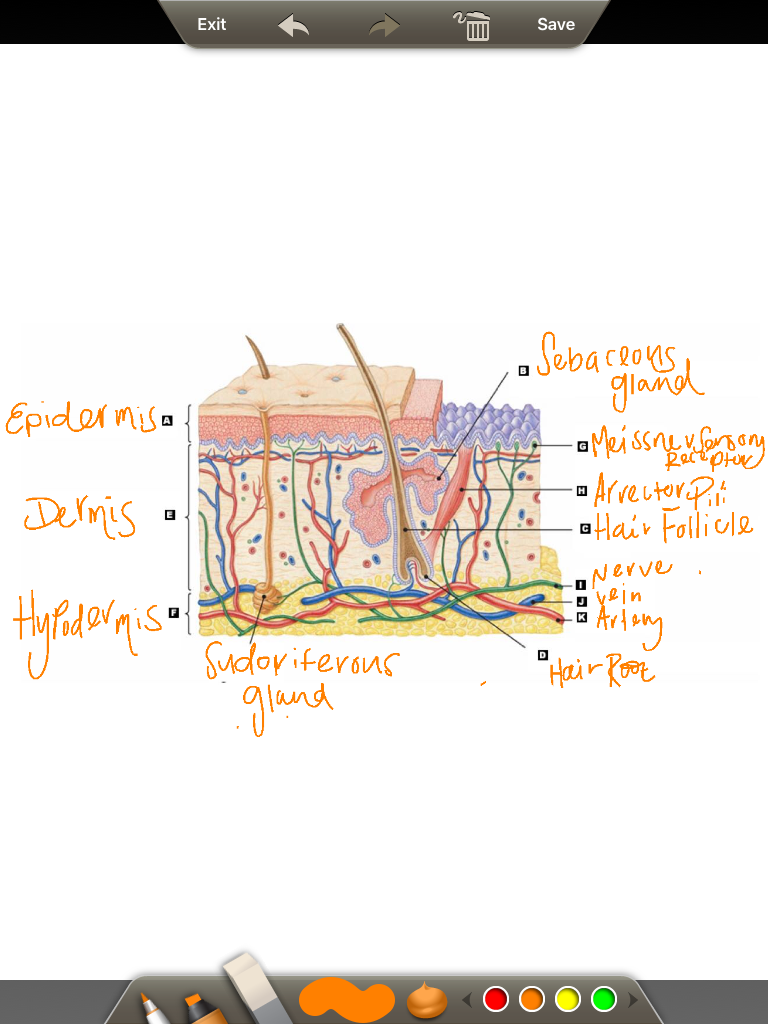 Exit
Save
B Sebaceous
gland
Epidermis A
G Meissner Sensory
Receptor
H Arrector Pili
Dermis E
C Hair Follicle
I Nerve
J vein
Hypodermis F
K Artery
Sudoriferous
gland
D
Hair Root